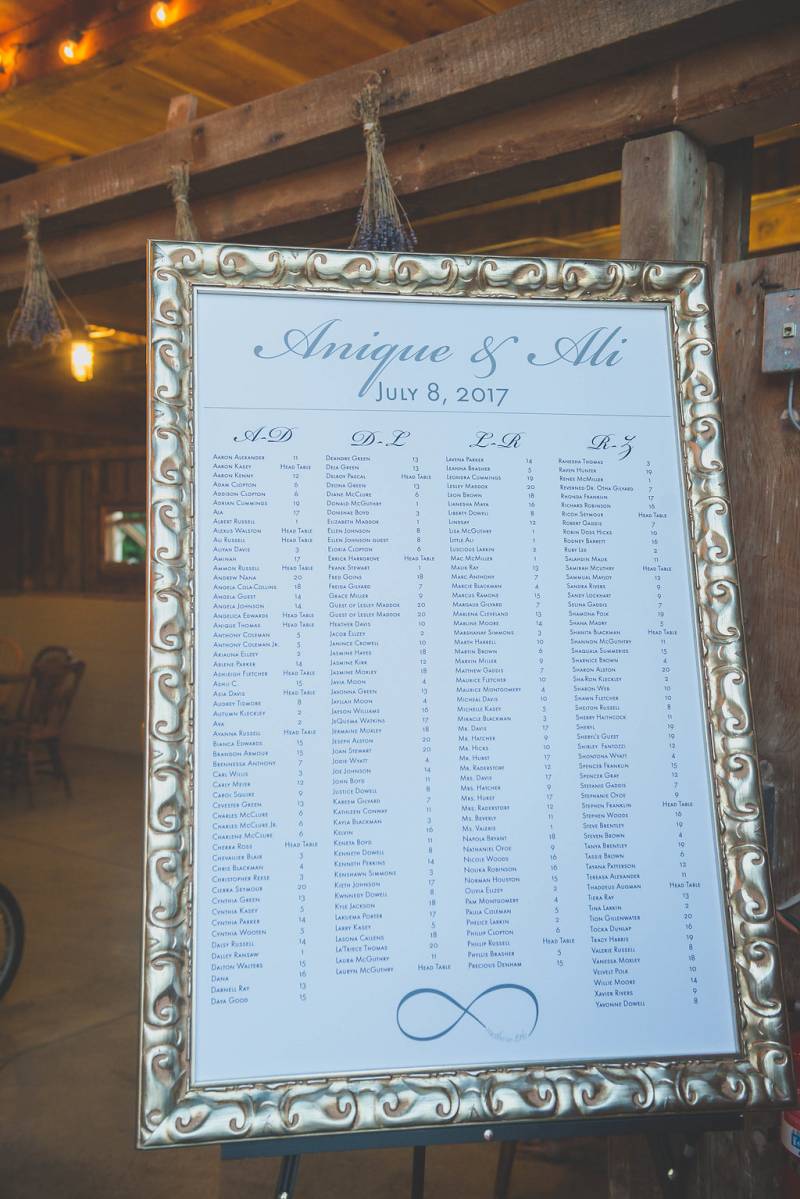 Anique & Ali
July 8, 2017
A-D
Aaron Alexander 11
Aaron Kasey Head Table
Aaron Kenny 12
Adam Clopton 6
Addison Clopton 6
Adrian Cummings 19
Aja 17
Albert Russell 1
Alexus Walston Head Table
Ali Russell Head Table
Aliyah Davis 3
Aminah 17
Ammon Russell Head Table
Andrew Nana 20
Angela Cola-Collins 18
Angela Guest 14
Angela Johnson 14
Angelica Edwards Head Table
Anique Thomas Head Table
Anthony Coleman 5
Anthony Coleman Jr. 5
Ariauna Ellzey 2
Arlene Parker 14
Ashleigh Fletcher Head Table
Ashli C. 15
Asia Davis Head Table
Audrey Tidmore 8
Autumn Kleckley 2
Ava 2
Ayanna Russell Head Table
Bianca Edwards 15
Brandon Armour 15
Brennessa Anthony 7
Carl Willis 3
Carly Meyer 12
Carol Squire 9
Cevester Green 13
Charles McClure 6
Charles McClure Jr. 6
Charlene McClure 6
Cherra Ross Head Table
Chevailier Blair 3
Chris Blackman 4
Christopher Reese 3
Cierra Seymour 20
Cynthia Green 13
Cynthia Kasey 5
Cynthia Parker 14
Cynthia Wooten 5
Daisy Russell 14
Dalley Ransaw 1
Dalton Walters 15
Dana 16
Darnell Ray 13
Daya Good 15
D-L
Deandre Green 13
Deja Green 13
Delroy Pascal Head Table
Deidra Green 13
Diane McClure 6
Donald McGuthry 1
Donshae Boyd 3
Elizabeth Maddox 1
Ellen Johnson 8
Ellen Johnson guest 8
Eloria Clopton 6
Errick Hargrove Head Table
Frank Stewart
Fred Goins 18
Freida Gilyard 7
Grace Miller 9
Guest of Lesley Maddox 20
Guest of Lesley Maddox 20
Heather Davis 10
Jacob Ellzey 2
Janince Crowell 10
Jasmine Hayes 18
Jasmine Kirk 12
Jasmine Moxley 18
Javia Moon 4
Javonna Green 13
Jayllah Moon 4
Jayson Williams 16
JeQuema Watkins 17
Jermaine Moxley 18
Joseph Alston 20
Joan Stewart 20
Jodie Wyatt 4
Joe Johnson 14
John Boyd 11
Justice Dowell 8
Kareem Gilyard 7
Kathleen Conway 11
Kayla Blackman 3
Kelvin 16
Keneya Boyd 11
Kenneth Dowell 8
Kenneth Perkins 14
Kenshawn Simmons 3
Kieth Johnson 17
Kwnnedy Dowell 8
Kyle Jackson 18
Lakuema Porter 17
Larry Kasey 5
Lasona Callens 18
La'Triece Thomas 20
Laura McGuthry 11
Lauryn McGuthry Head Table
L-R
Lavena Parker 14
Leanna Brasher 5
Leondra Cummings 19
Lesley Maddox 20
Leon Brown 18
Lianesha Maya 16
Liberty Dowell 8
Lindsay 12
Lisa McGuthry 1
Little Ali 1
Luscious Larkin 2
Mac McMiller 1
Malik Ray 13
Marc Anthony 7
Marcie Blackman 4
Marcus Ramons 15
Margaux Gilyard 7
Marlena Cleveland 13
Marline Moore 14
Marshanay Simmons 3
Marth Harrell 10
Martin Brown 6
Marvin Miller 9
Matthew Gaddis 7
Maurice Fletcher 10
Maurice Montgomery 4
Micheal Davis 10
Michelle Kasey 5
Miracle Blackman 3
Mr. Davis 17
Mr. Hatcher 9
Mr. Hicks 10
Mr. Hurst 17
Mr. Raderstorf 12
Mrs. Davis 17
Mrs. Hatcher 9
Mrs. Hurst 17
Mrs. Raderstorf 12
Ms. Beverly 11
Ms. Valerie 1
Napola Bryant 18
Nathaniel Ofoe 9
Nicole Woods 16
Nojika Robinson 16
Norman Houston 15
Olivia Ellzey 2
Pam Montgomery 4
Paula Coleman 5
Phelice Larkin 2
Phillip Clopton 6
Phillip Russell Head Table
Phyllis Brasher 5
Precious Denham 15
R-Z
Raneisha Thomas 3
Raven Hunter 19
Renee McMiller 1
Reverned Dr. Otha Gilyard 7
Rhonda Franklin 17
Richard Robinson 16
Ricoh Seymour Head Table
Robert Gaddis 7
Robin Doss Hicks 10
Rodney Barrett 16
Ruby Lee 2
Salahdin Malik 11
Samirah Mcuthry Head Table
Sammual Mayjoy 12
Sandra Rivers 9
Sandy Lockhart 9
Selina Gaddis 7
Shamona Polk 19
Shana Madry 5
Shanita Blackman Head Table
Shannon McGuthery 11
Shaquala Summeries 15
Sharnice Brown 4
Sharon Alston 20
ShaRon Kleckley 2
Sharon Web 10
Shawn Fletcher 10
Shelton Russell 8
Sherry Haithcock 11
Sheryl 19
Sheryl's Guest 19
Shirley Fantozzi 12
Shontona Wyatt 4
Spencer Franklin 15
Spencer Gray 12
Stefanie Gaddis 7
Stephanie Ofoe 9
Stephen Franklin Head Table
Stephen Woods 16
Steve Brentley 19
Steven Brown 4
Tanya Brentley 19
Tassie Brown 6
Tatana Patterson 12
Tereasa Alexander 11
Thaddeus Augman Head Table
Tiera Ray 13
Tina Larkin 2
Tion Gillenwater 20
Tocka Dunlap 16
Tracy Harris 19
Valerie Russell 8
Vanessa Moxley 18
Velvet Polk 10
Willie Moore 14
Xavier Rivers 9
Yavonne Dowell 8